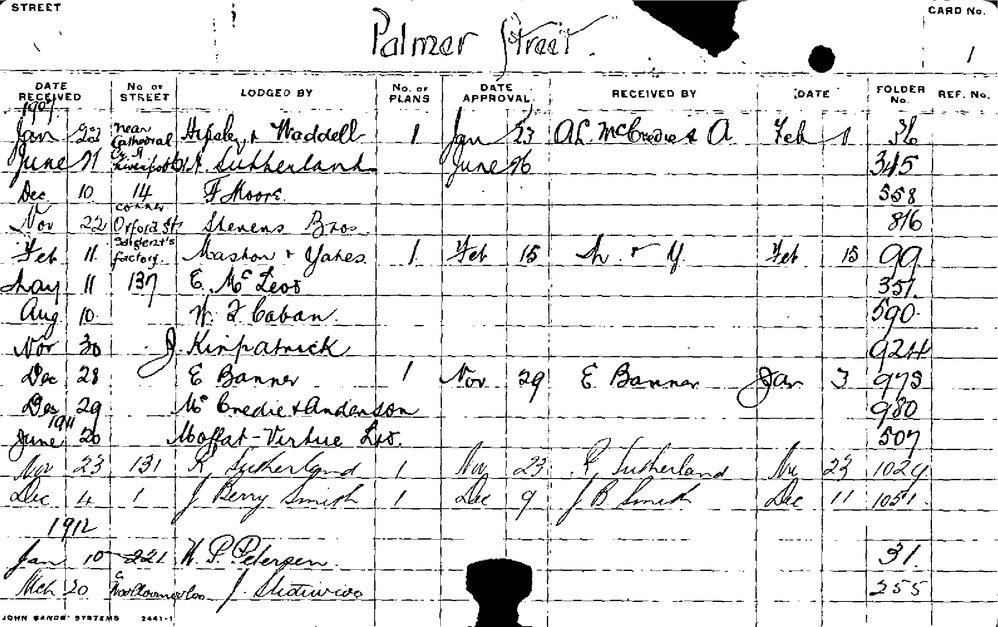 STREET
CARD No.
Palmer Street.
1
DATE RECEIVED No. of STREET LODGED BY No. of PLANS DATE APPROVAL RECEIVED BY DATE FOLDER No. REF. No.
1907
Jan 22 near Cathedral & Waddell 1 Jan 23 A.L. McCredie & A Feb 36
June 21 Sutherland June 26 345
Dec. 10 14 F Moore. 558
Nov 22 corner Orford St Stevens Bros 816
Feb 11 Sargent's factory. Mashon & Yates 1 Feb 15 & Y. Feb 15 99
May 11 137 E. McLeod 351.
Aug 10. W. Caban. 590.
Nov 30 J. Kirkpatrick 924
Dec 28 E Banner 1 Nov 29 E Banner Jan 3 973
Dec 29 McCredie & Anderson 980
1911
June 20 Moffat-Virtue Ltd. 507
Nov 23 131 R Sutherland 1 Nov 23 R Sutherland Nov 23 1029
Dec 4 1 J Berry Smith 1 Dec 9 J.B. Smith Dec 11 1051.
1912
Jan 10 221 W. P. Petersen. 31.
Mch 20 J. 255
JOHN SANDS' SYSTEMS 2441-1